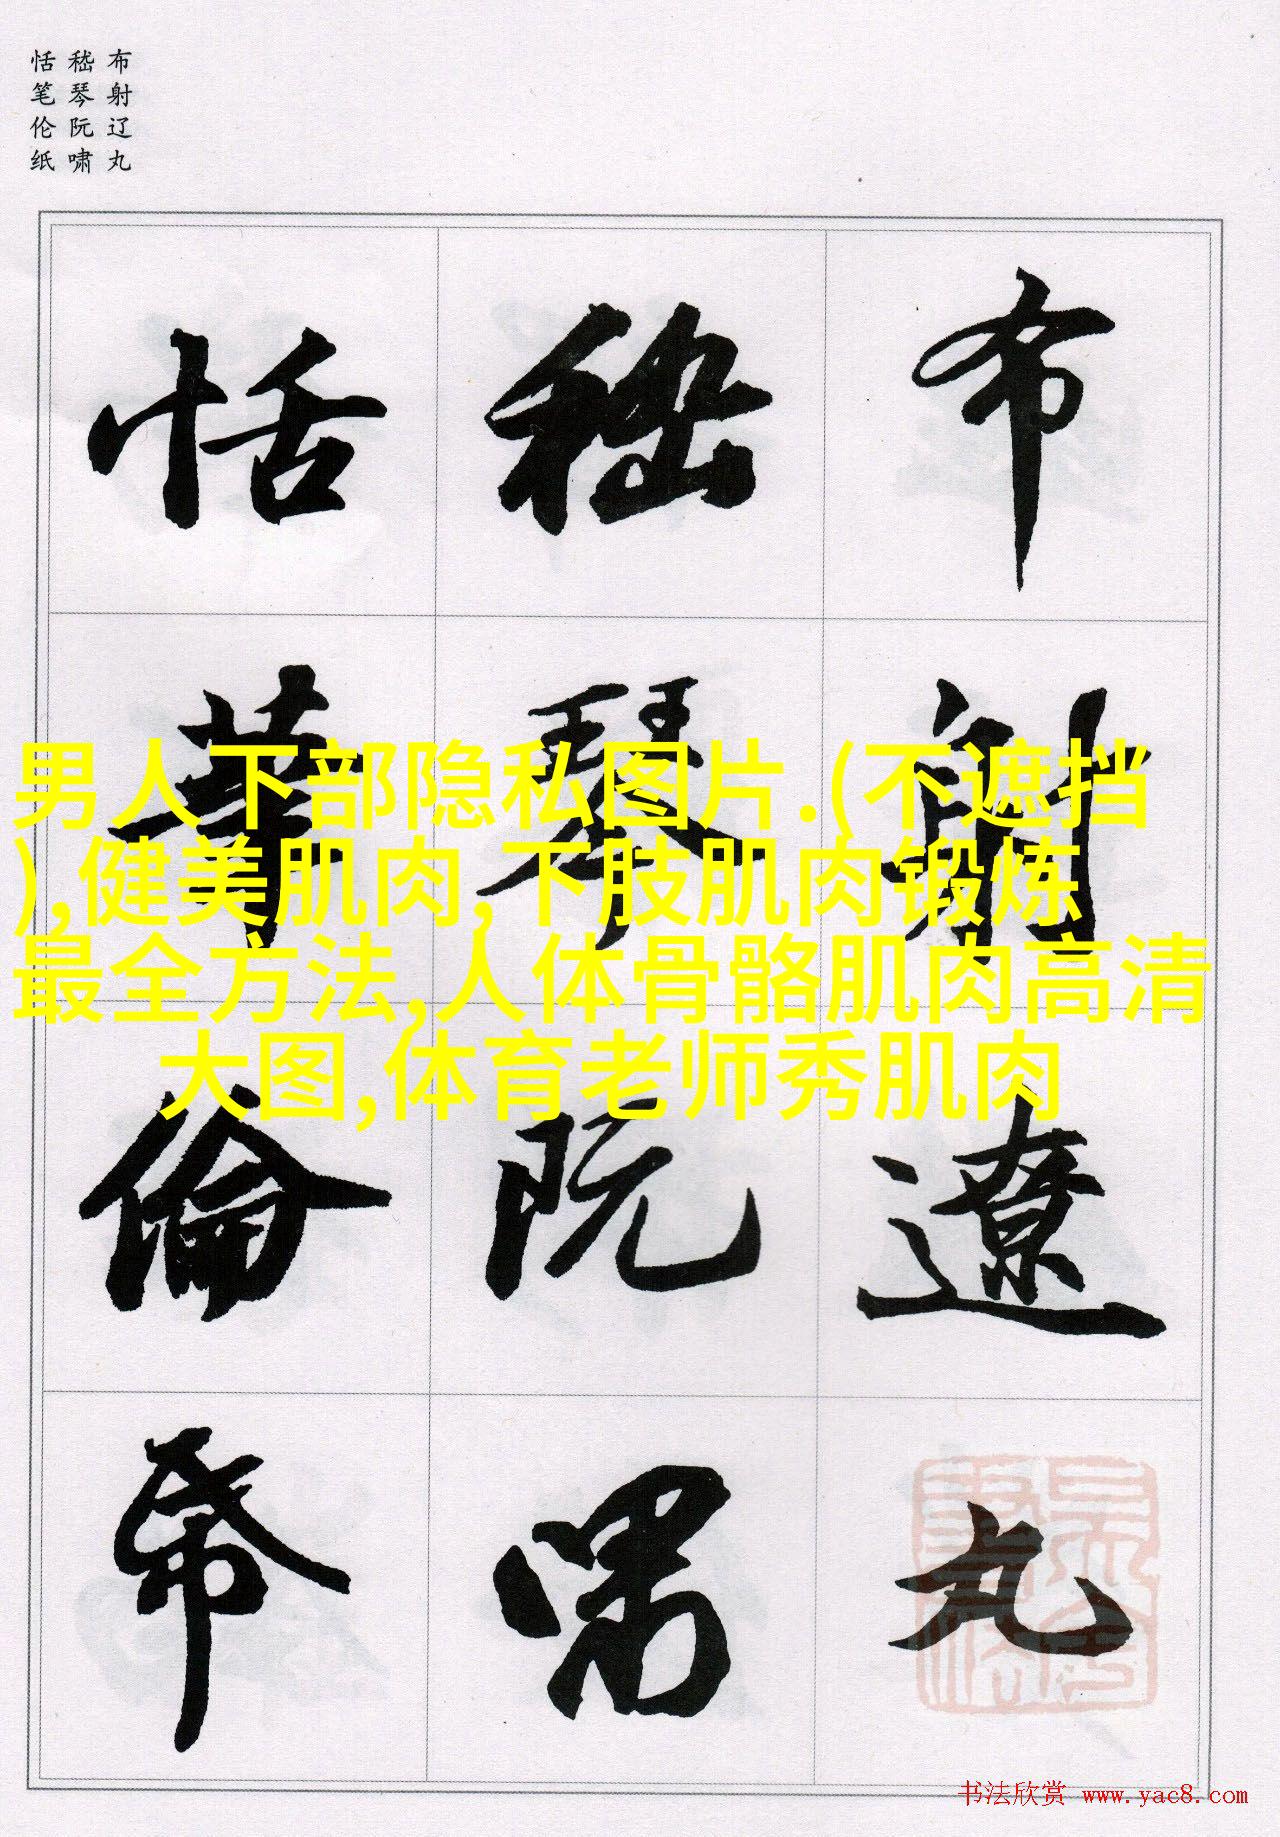 布射辽丸
嵇琴阮啸
恬笔伦纸
布射遼丸
嵇琴阮嘯
恬筆倫帋
男人下部隐私图片.(不遮挡
),健美肌肉,下肢肌肉锻炼
最全方法,人体骨骼肌肉高清
大图,体育老师秀肌肉
书法欣赏 www.yac8.com